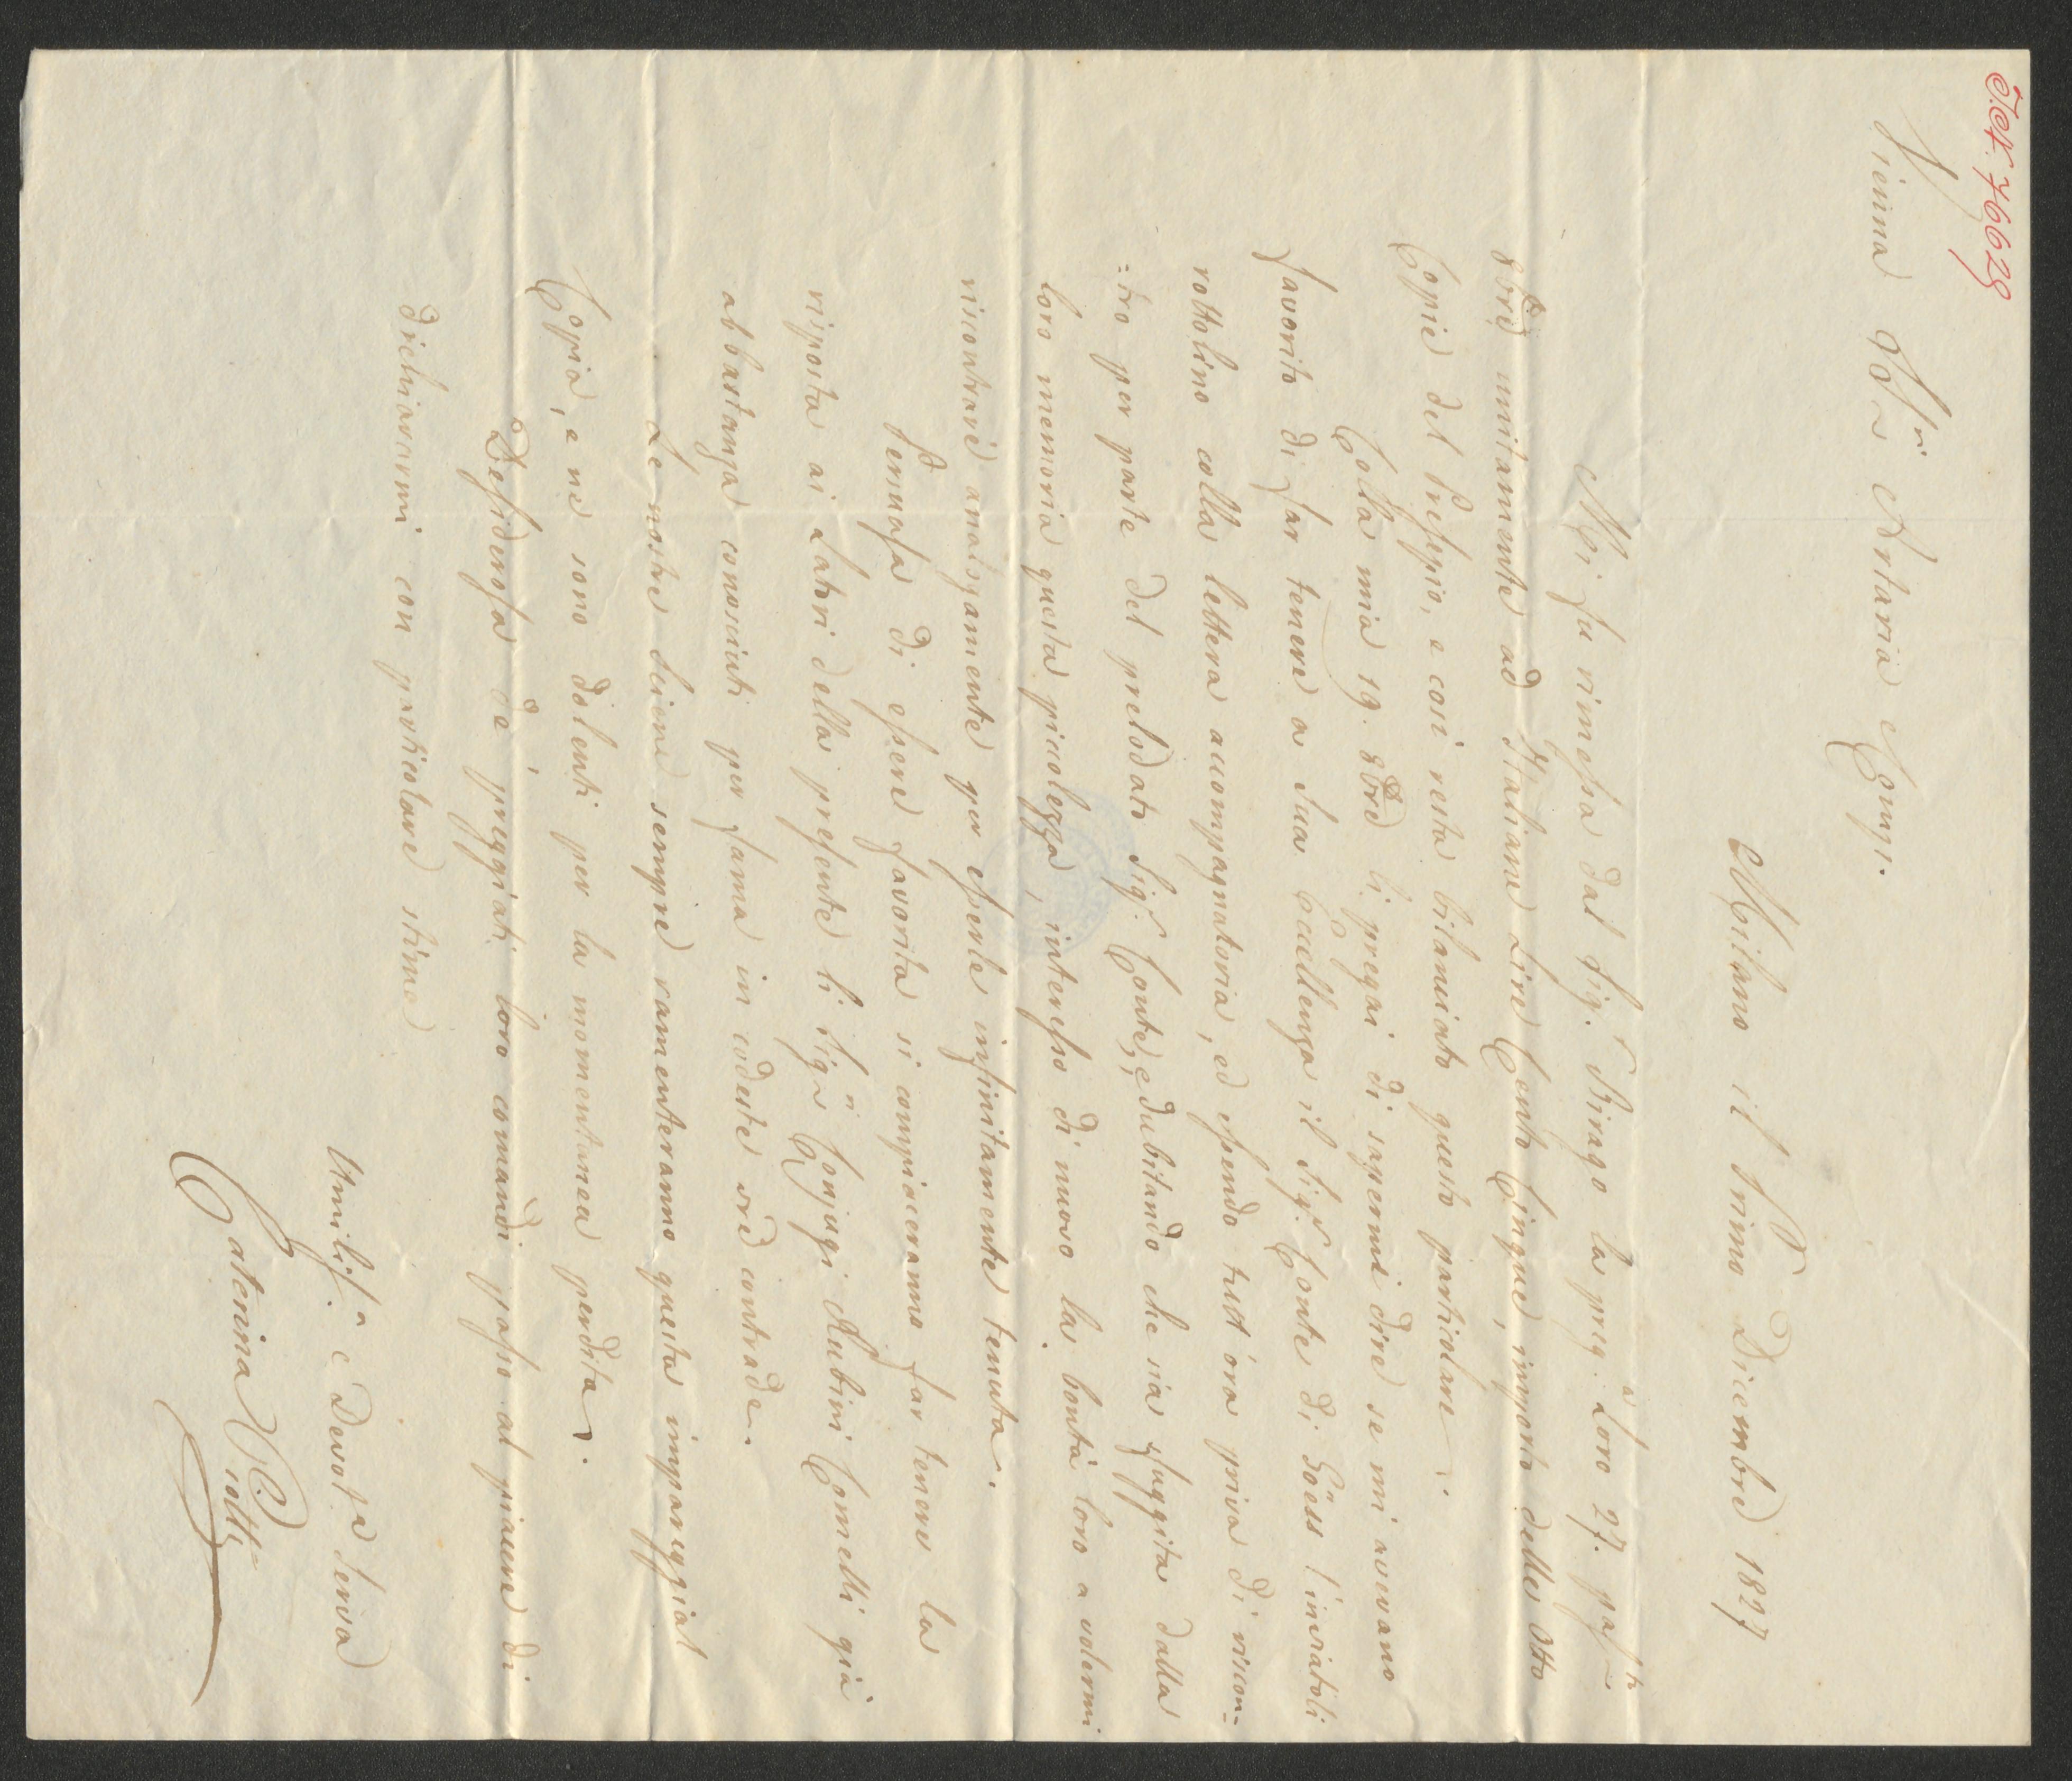 I.N. 76629
Vienna SS.ri Artaria e Comp.
Milano il Primo Dicembre 1827
Mi fu rimessa dal Sig.r Birago la preg.a Loro 27. pass.to
8bre unitamente ad Italiane Lire Cento Cinque, importo delle Otto
Copie del Presepio, e così resta bilanciato questo particolare.
Colla mia 19. 8bre li pregai di sapermi dire se mi avevano
favorito di far tenere a Sua Eccellenza il Sig.r Conte di Goëss l'inviatoli
rottolino colla lettera accompagnatoria, ed essendo tutt'ora priva di riscon=
=tro per parte del prelodato Sig.r Conte, e dubitando che sia sfuggita dalla
loro memoria questa piccolezza, interesso di nuovo la bontà loro a volermi
riscontrare analogamente per esserle infinitamente tenuta.
Persuasa di essere favorita si compiaceranno far tenere la
risposta ai Latori della presente li Sig.ri Conjugi Rubini Comelli già
abbastanza conosciuti per fama in codeste vre contrade.
Le nostre Sciene sempre ramenteranno questa impareggial
Copia, e ne sono dolenti per la momentanea perdita.
Desiderosa de' preggiati loro comandi passo al piacere di
dichiararmi con particolare stima
Umilis.a e Devot.a Serva
Caterina Viotti